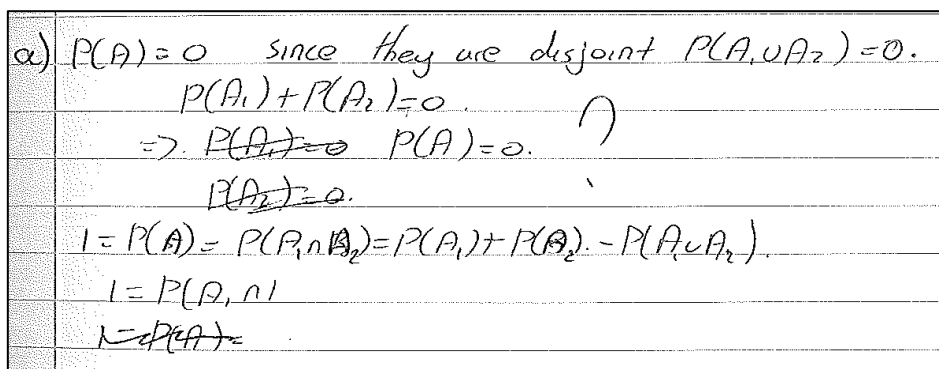 a) P(A)=0 since they are disjoint P(A₁∪A₂)=0.
P(A₁)+P(A₂)=0.
=>. P(A₁)=0 P(A)=0. ?
P(A₂)=0.
1=P(A)= P(A₁∩A₂)=P(A₁)+P(A₂).-P(A₁∪A₂).
1=P(A₁∩1
1=P(A)=